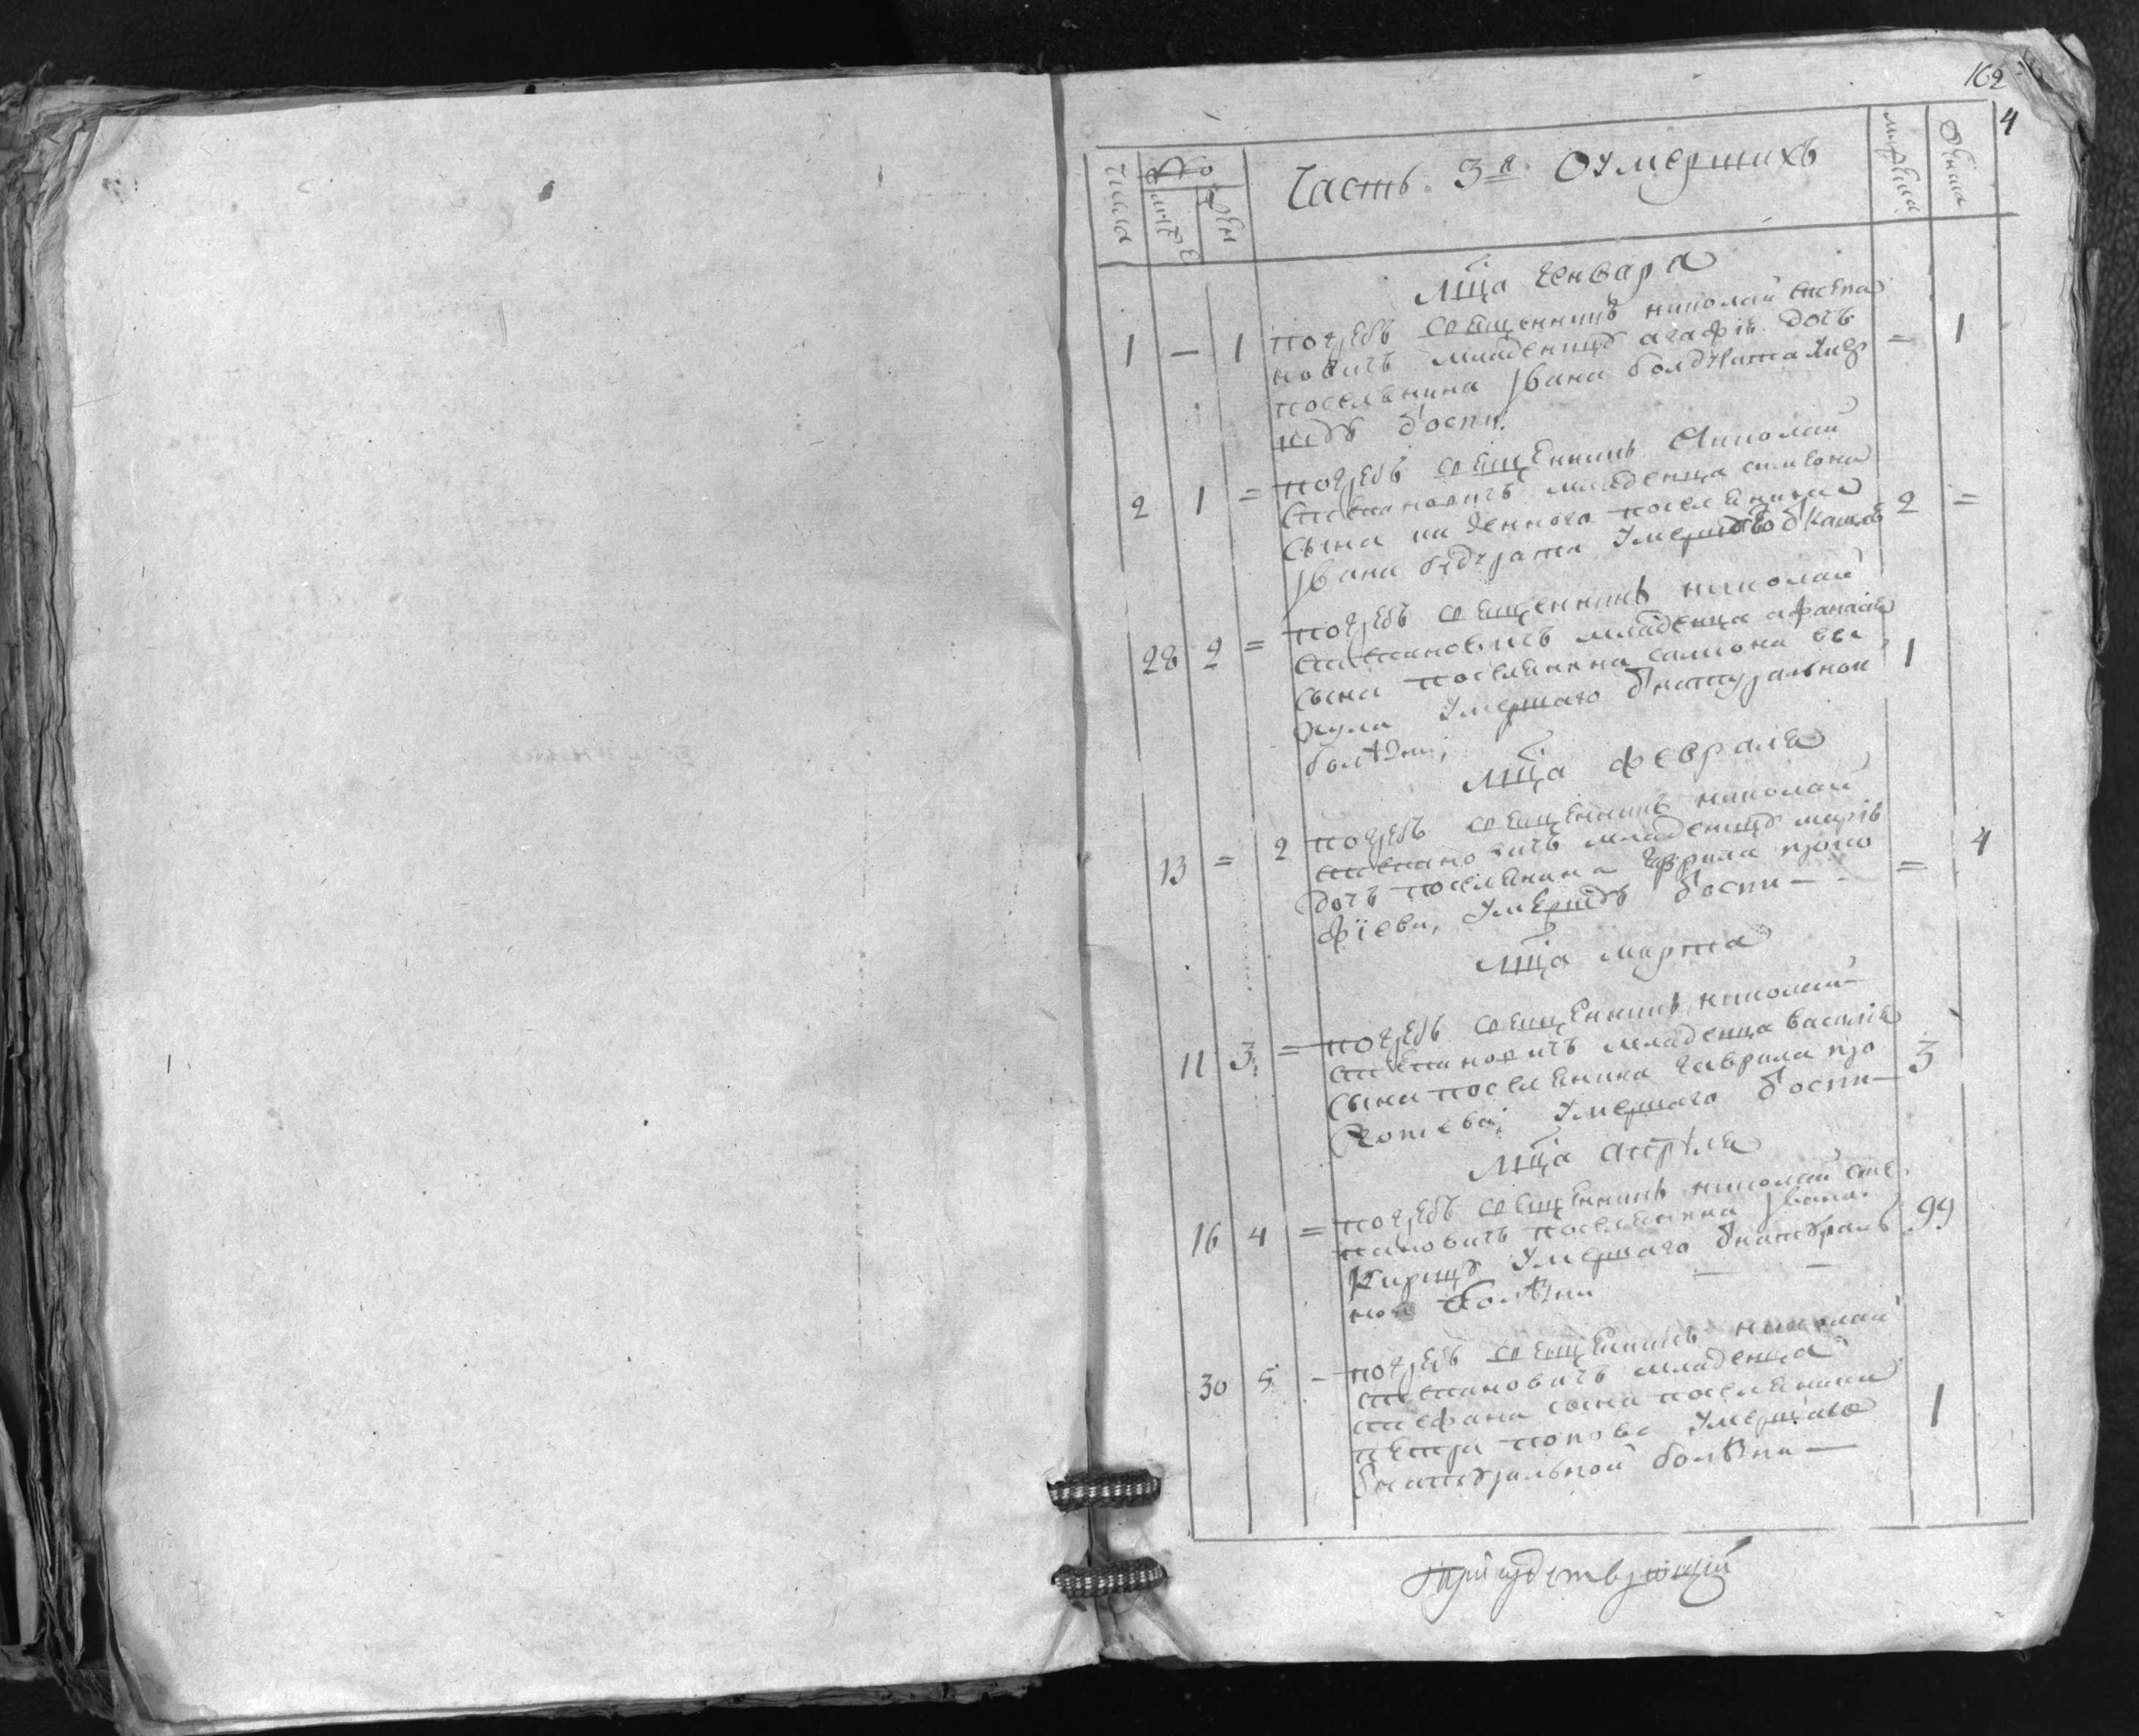 162
4
числа
мужеска
женска
Часть 3я Оумершихъ
Мца Генваря
1 — 1 погребъ священникъ николай степа
новичъ младеницу агафїю дочъ
поселянина Ивана болдУмер = 1
шую ѿоспи
2 1 = погребъ священникъ Николай
степановичъ младенца симеона
сына поселянина
Ивана Умершаго ѿ кашлю 2 =
28 2 = погребъ священникъ николай
степановичъ младенца афанасїя
сына поселянина самсона 1
Умершаго ѿнатуральной
болѣзни;
Мца февраля
13 = 2 погребъ священникъ николай
степановичъ младеницу марїю
дочъ поселянина Гаврила проко = 4
фїева, Умершую ѿоспи —
Мца марта
11 3 = погребъ священникъ николай
степановичъ младенца василїя
сына поселянина Гаврила про 3
Умершаго ѿоспи —
Мца апрѣля
16 4 = погребъ священникъ николай сте
пановичъ поселянина Ивана
Умершаго ѿнатураль 99
ной болѣзни —
30 5 — погребъ священникъ николай
степановичъ младенца
стефана сына поселянина
петра попова Умершаго 1
ѿнатуральной болѣзни —